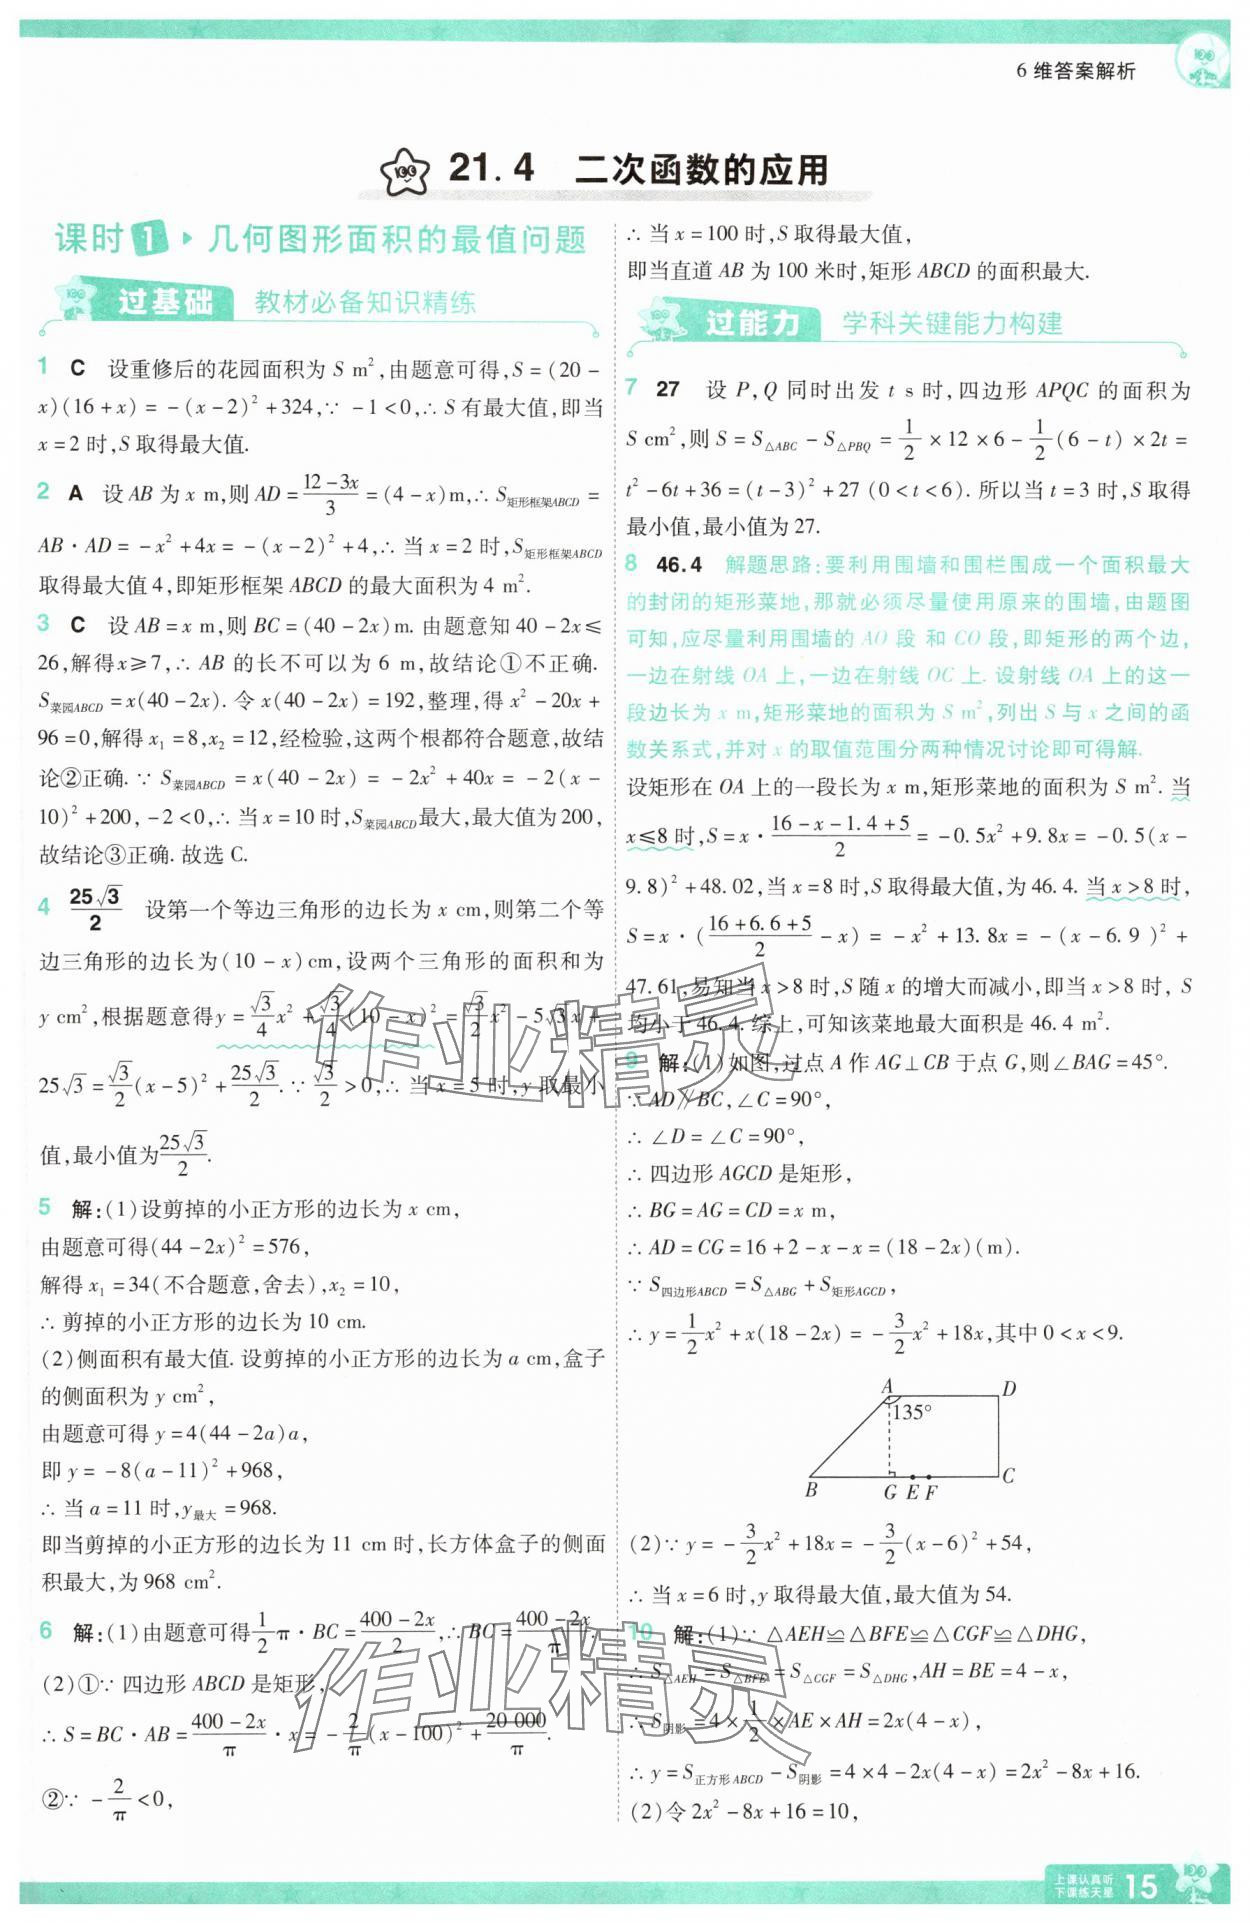 6 维答案解析
21.4 二次函数的应用
课时 1 ▸ 几何图形面积的最值问题
过基础 教材必备知识精练
1 C 设重修后的花园面积为 S m²,由题意可得,S=(20-
x)(16+x)=-(x-2)²+324,∵ -1<0,∴ S 有最大值,即当
x=2 时,S 取得最大值.
2 A 设 AB 为 x m,则 AD=(12-3x)/3=(4-x)m,∴ S矩形框架ABCD=
AB·AD=-x²+4x=-(x-2)²+4,∴ 当 x=2 时,S矩形框架ABCD
取得最大值 4,即矩形框架 ABCD 的最大面积为 4 m².
3 C 设 AB=x m,则 BC=(40-2x)m. 由题意知 40-2x≤
26,解得x≥7,∴ AB 的长不可以为 6 m,故结论①不正确.
S菜园ABCD=x(40-2x). 令 x(40-2x)=192,整理,得 x²-20x+
96=0,解得 x₁=8,x₂=12,经检验,这两个根都符合题意,故结
论②正确. ∵ S菜园ABCD=x(40-2x)=-2x²+40x=-2(x-
10)²+200,-2<0,∴ 当 x=10 时,S菜园ABCD最大,最大值为 200,
故结论③正确. 故选 C.
4 25√3/2 设第一个等边三角形的边长为 x cm,则第二个等
边三角形的边长为(10-x)cm,设两个三角形的面积和为
y cm²,根据题意得y=√3/4x²+√3/4(10-x)²=√3/2x²-5√3x+
25√3=√3/2(x-5)²+25√3/2. ∵ √3/2>0,∴ 当 x=5 时,y 取最小
值,最小值为25√3/2.
5 解:(1)设剪掉的小正方形的边长为 x cm,
由题意可得(44-2x)²=576,
解得 x₁=34(不合题意,舍去),x₂=10,
∴ 剪掉的小正方形的边长为 10 cm.
(2)侧面积有最大值. 设剪掉的小正方形的边长为 a cm,盒子
的侧面积为 y cm²,
由题意可得 y=4(44-2a)a,
即 y=-8(a-11)²+968,
∴ 当 a=11 时,y最大=968.
即当剪掉的小正方形的边长为 11 cm 时,长方体盒子的侧面
积最大,为 968 cm².
6 解:(1)由题意可得1/2π·BC=(400-2x)/2,∴ BC=(400-2x)/π.
(2)①∵ 四边形 ABCD 是矩形,
∴ S=BC·AB=(400-2x)/π·x=-2/π(x-100)²+20 000/π.
②∵ -2/π<0,
∴ 当 x=100 时,S 取得最大值,
即当直道 AB 为 100 米时,矩形 ABCD 的面积最大.
过能力 学科关键能力构建
7 27 设 P,Q 同时出发 t s 时,四边形 APQC 的面积为
S cm²,则 S=S△ABC-S△PBQ=1/2×12×6-1/2(6-t)×2t=
t²-6t+36=(t-3)²+27 (0<t<6). 所以当 t=3 时,S 取得
最小值,最小值为 27.
8 46.4 解题思路:要利用围墙和围栏围成一个面积最大
的封闭的矩形菜地,那就必须尽量使用原来的围墙,由题图
可知,应尽量利用围墙的 AO 段 和 CO 段,即矩形的两个边,
一边在射线 OA 上,一边在射线 OC 上. 设射线 OA 上的这一
段边长为 x m,矩形菜地的面积为 S m²,列出 S 与 x 之间的函
数关系式,并对 x 的取值范围分两种情况讨论即可得解.
设矩形在 OA 上的一段长为 x m,矩形菜地的面积为 S m². 当
x≤8 时,S=x·(16-x-1.4+5)/2=-0.5x²+9.8x=-0.5(x-
9.8)²+48.02,当 x=8 时,S 取得最大值,为 46.4. 当 x>8 时,
S=x·((16+6.6+5)/2-x)=-x²+13.8x=-(x-6.9)²+
47.61,易知当 x>8 时,S 随 x 的增大而减小,即当 x>8 时, S
均小于 46.4. 综上,可知该菜地最大面积是 46.4 m².
9 解:(1)如图,过点 A 作 AG⊥CB 于点 G,则∠BAG=45°.
∵ AD∥BC,∠C=90°,
∴ ∠D=∠C=90°,
∴ 四边形 AGCD 是矩形,
∴ BG=AG=CD=x m,
∴ AD=CG=16+2-x-x=(18-2x)(m).
∵ S四边形ABCD=S△ABG+S矩形AGCD,
∴ y=1/2x²+x(18-2x)=-3/2x²+18x,其中 0<x<9.
A D
135°
B G E F C
(2)∵ y=-3/2x²+18x=-3/2(x-6)²+54,
∴ 当 x=6 时,y 取得最大值,最大值为 54.
10 解:(1)∵ △AEH≌△BFE≌△CGF≌△DHG,
∴ S△AEH=S△BFE=S△CGF=S△DHG,AH=BE=4-x,
∴ S阴影=4×1/2×AE×AH=2x(4-x),
∴ y=S正方形ABCD-S阴影=4×4-2x(4-x)=2x²-8x+16.
(2)令 2x²-8x+16=10,
作业精灵
作业精灵
上课认真听
下课练天星
15